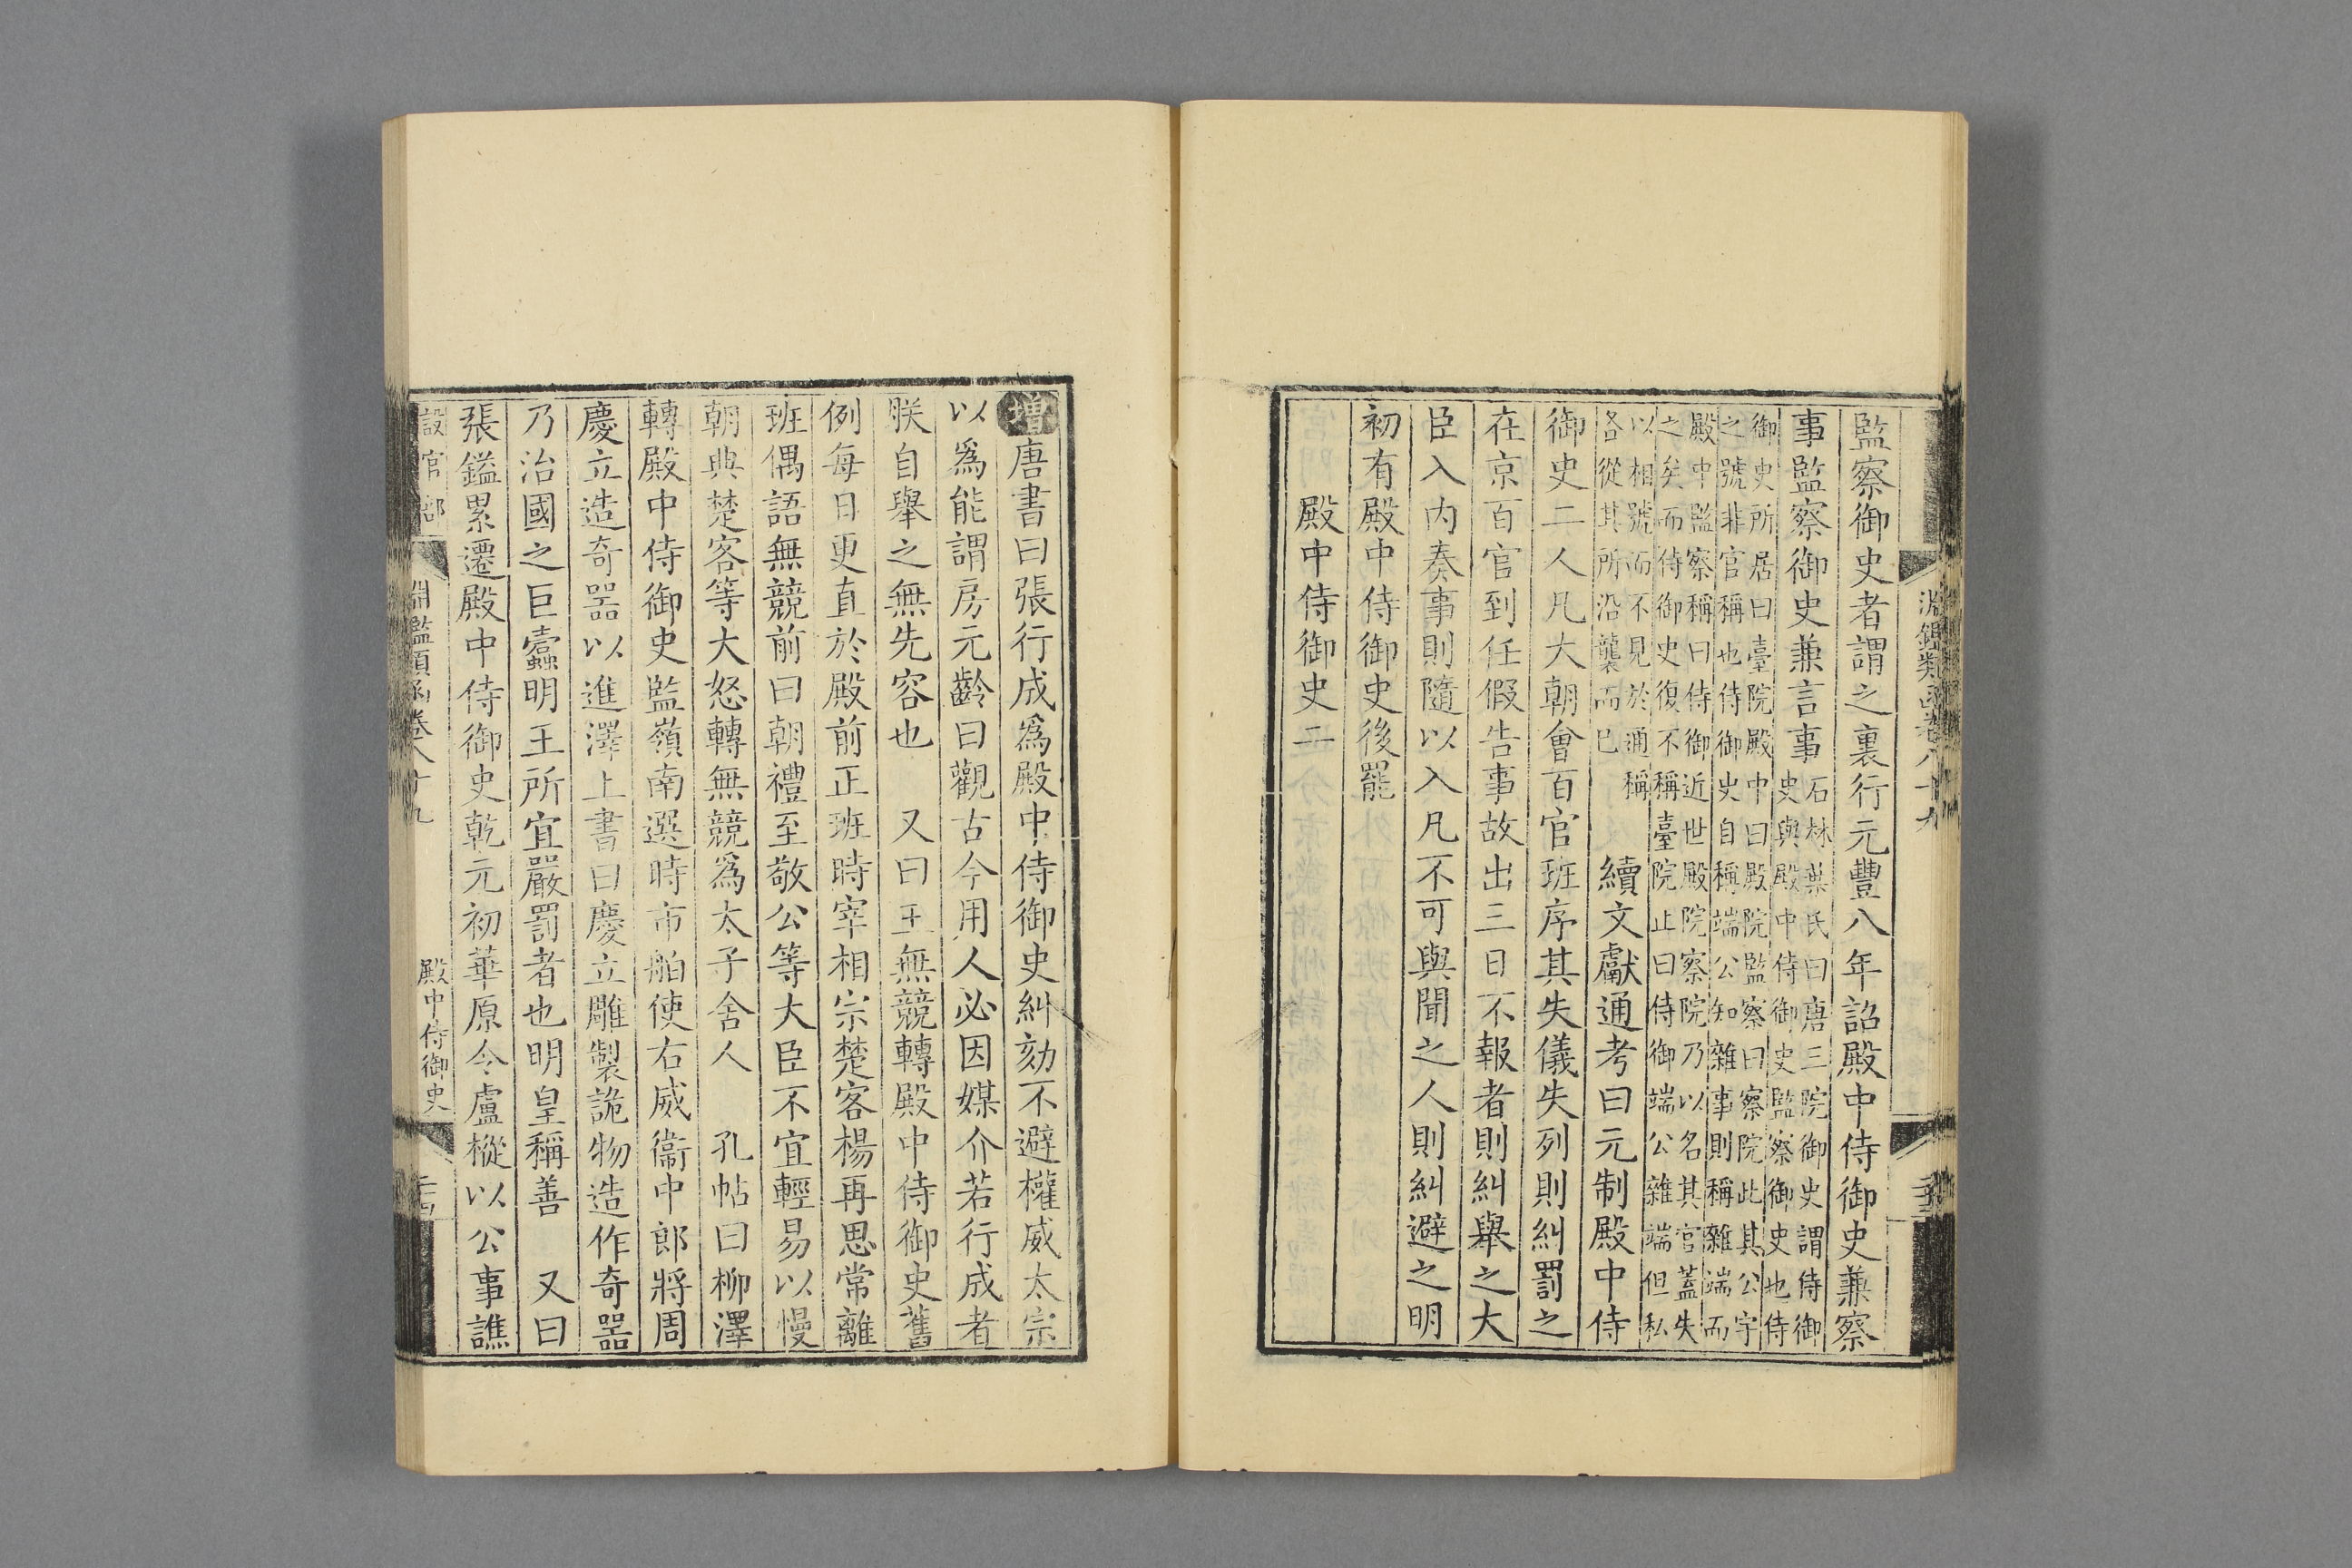 淵鑑類函卷八十九
監察御史者謂之裏行元豐八年詔殿中侍御史兼察
事監察御史兼言事
石林葉氏曰唐三院御史謂侍御
史與殿中侍御史監察御史也侍
御史所居曰臺院殿中曰殿院監察曰察院此其公宇
之號非官稱也侍御史自稱端公知雜事則稱雜端而
殿中監察稱曰侍御近世殿院察院乃以名其官蓋失
之矣而侍御史復不稱臺院止曰侍御端公雜端但私
以相號而不見於通稱
各從其所沿襲而已
續文獻通考曰元制殿中侍
御史二人凡大朝會百官班序其失儀失列則糾罰之
在京百官到任假告事故出三日不報者則糾舉之大
臣入内奏事則隨以入凡不可與聞之人則糾避之明
初有殿中侍御史後罷
殿中侍御史二
增唐書曰張行成爲殿中侍御史糾劾不避權威太宗
以爲能謂房元齡曰觀古今用人必因媒介若行成者
朕自舉之無先容也 又曰王無競轉殿中侍御史舊
例每日更直於殿前正班時宰相宗楚客楊再思常離
班偶語無競前曰朝禮至敬公等大臣不宜輕易以慢
朝典楚客等大怒轉無競爲太子舍人 孔帖曰柳澤
轉殿中侍御史監嶺南選時市舶使右威衞中郎將周
慶立造奇器以進澤上書曰慶立雕製詭物造作奇器
乃治國之巨蠹明王所宜嚴罰者也明皇稱善 又曰
張鎰累遷殿中侍御史乾元初華原令盧樅以公事譙
設官部 淵鑑類函卷八十九 殿中侍御史